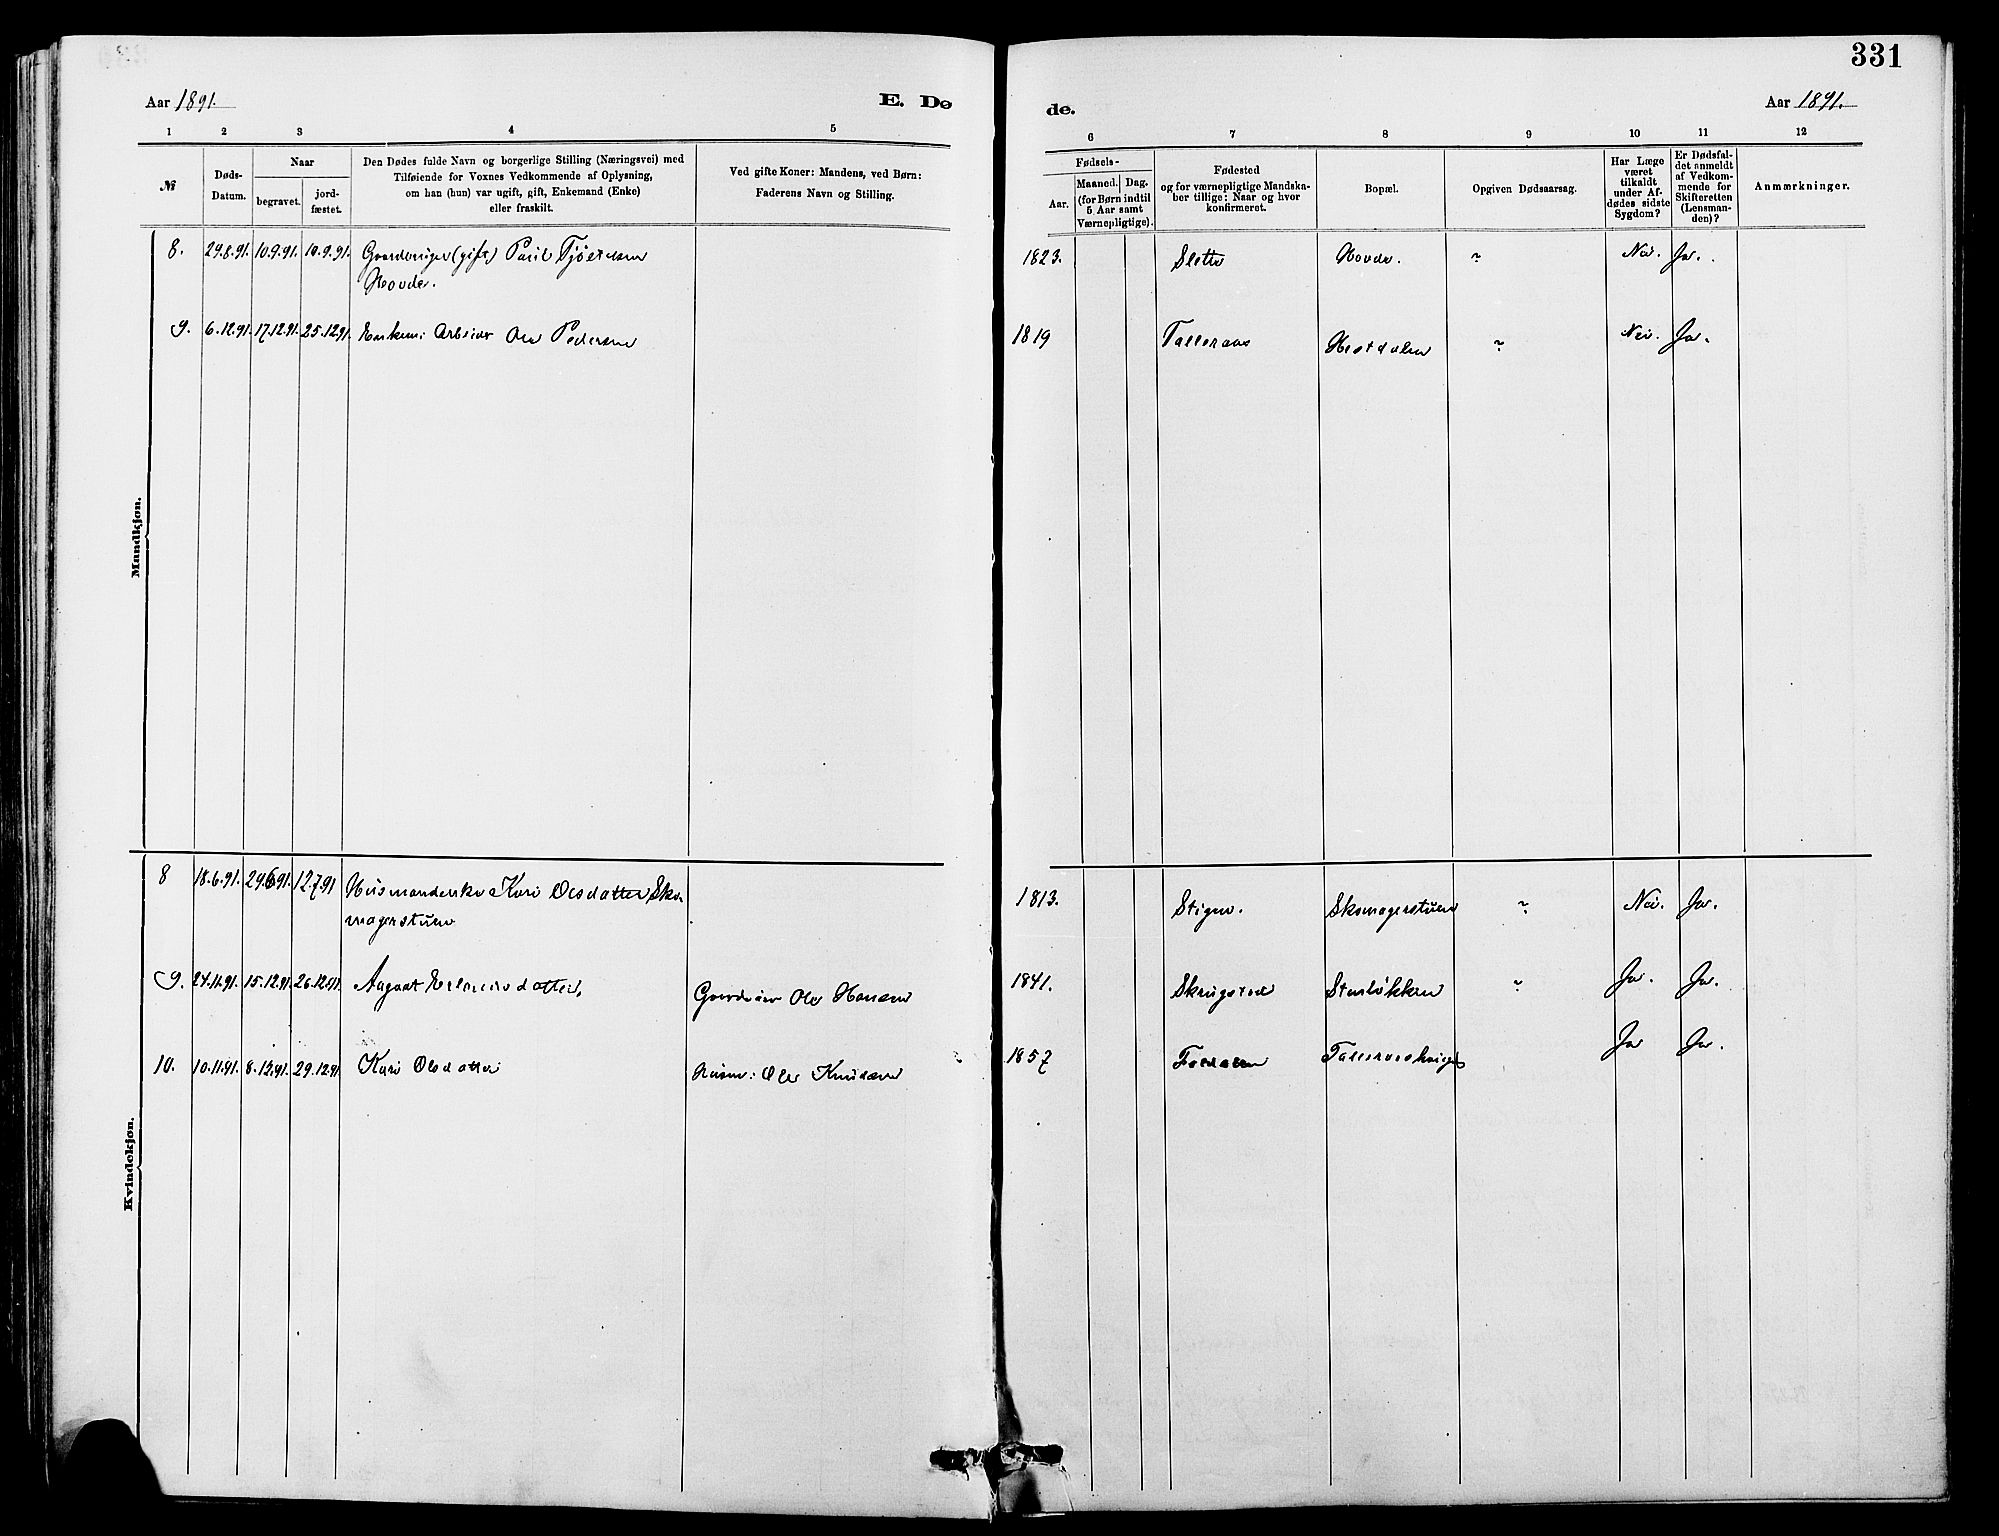 331
Aar 1891.
E. Dø
de.
Aar 1891.
1 2 3 4 5
6 7 8 9 10 11 12
№
Døds-
Datum.
Naar
begravet.
jord-
fæstet.
Den Dødes fulde Navn og borgerlige Stilling (Næringsvei) med
Tilføiende for Voxnes Vedkommende af Oplysning,
om han (hun) var ugift, gift, Enkemand (Enke)
eller fraskilt.
Ved gifte Koner: Mandens, ved Børn:
Faderens Navn og Stilling.
Fødsels-
Aar.
Maaned. Dag.
(for Børn indtil
5 Aar samt
Værnepligtige).
Fødested
og for værnepligtige Mandska-
ber tillige: Naar og hvor
konfirmeret.
Bopæl.
Opgiven Dødsaarsag.
Har Læge
været
tilkaldt
under Af-
dødes sidste
Sygdom?
Er Dødsfal-
det anmeldt
af Vedkom-
mende for
Skifteretten
(Lensman-
den)?
Anmærkninger.
Mandkjøn.
8. 29.8.91. 10.9.91. 10.9.91. (gift) Paul
Hovde.
1823. Slette Hovde. ? Nei. Ja.
9. 6.12.91. 17.12.91. 25.12.91. Enkem: Arbeider Ole Pedersen
1819 Talleraas Hestdalen ? Nei. Ja.
Kvindekjøn.
8 18.6.91. 29.6.91. 12.7.91 Kari Olsdatter Sko-
magerstuen
1813. Stigen. Skomagerstuen ? Nei. Ja.
9. 24.11.91. 15.12.91. 26.12.91. Aagaat Erlandsdatter. Ole Hansen
1841. Skrugstad Stenløkken ? Ja. Ja.
10. 10.11.91. 8.12.91. 29.12.91 Kari Olsdatter Husm: Ole Knudsen
1857 Ja Ja.